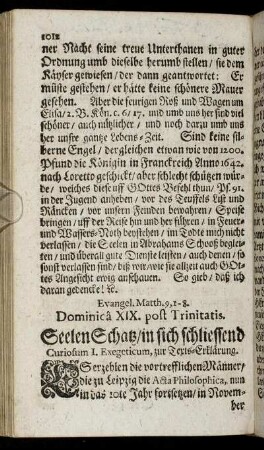 1012
ner Nacht seine treue Unterthanen in guter
Ordnung umb dieselbe herumb stellen / sie dem
Käyser gewiesen / der dann geantwortet: Er
müste gestehen / er hätte keine schönere Mauer
gesehen. Aber die feurigen Roß und Wagen um
Elisa / 2. B. Kön. c. 6 / 17. und umb uns her sind viel
schöner / auch nützlicher / und noch darzu umb uns
her unsre gantze Lebens-Zeit. Sind keine sil-
berne Engel / dergleichen etwan wie von 1200.
Pfund die Königin in Franckreich Anno 1642.
nach Loretto geschickt / aber schlecht schützen wür-
de / welches diese uff GOttes Befehl thun / Ps. 91.
in der Jugend anheben / vor des Teuffels List und
Räncken / vor unsern Feinden bewahren / Speise
bringen / uff der Reise hin und her führen / in Feuer-
und Wassers-Noth beystehen / im Tode mich nicht
verlassen / die Seelen in Abrahams Schooß beglei-
ten / und überall gute Dienste leisten / auch denen / so
sonst verlassen sind / biß wir / wie sie allzeit auch GOt-
tes Angesicht ewig anschauen. So gieb / daß ich
daran gedencke! &c.
Evangel. Matth. 9, 1-8.
Dominicâ XIX. post Trinitatis.
Seelen Schatz / in sich schliessend
Curiosum I. Exegeticum, zur Texts-Erklärung.
ES erzehlen die vortrefflichen Männer /
die zu Leipzig die Acta Philosophica, nun
in das 20te Jahr fortsetzen / in Novem-
ber